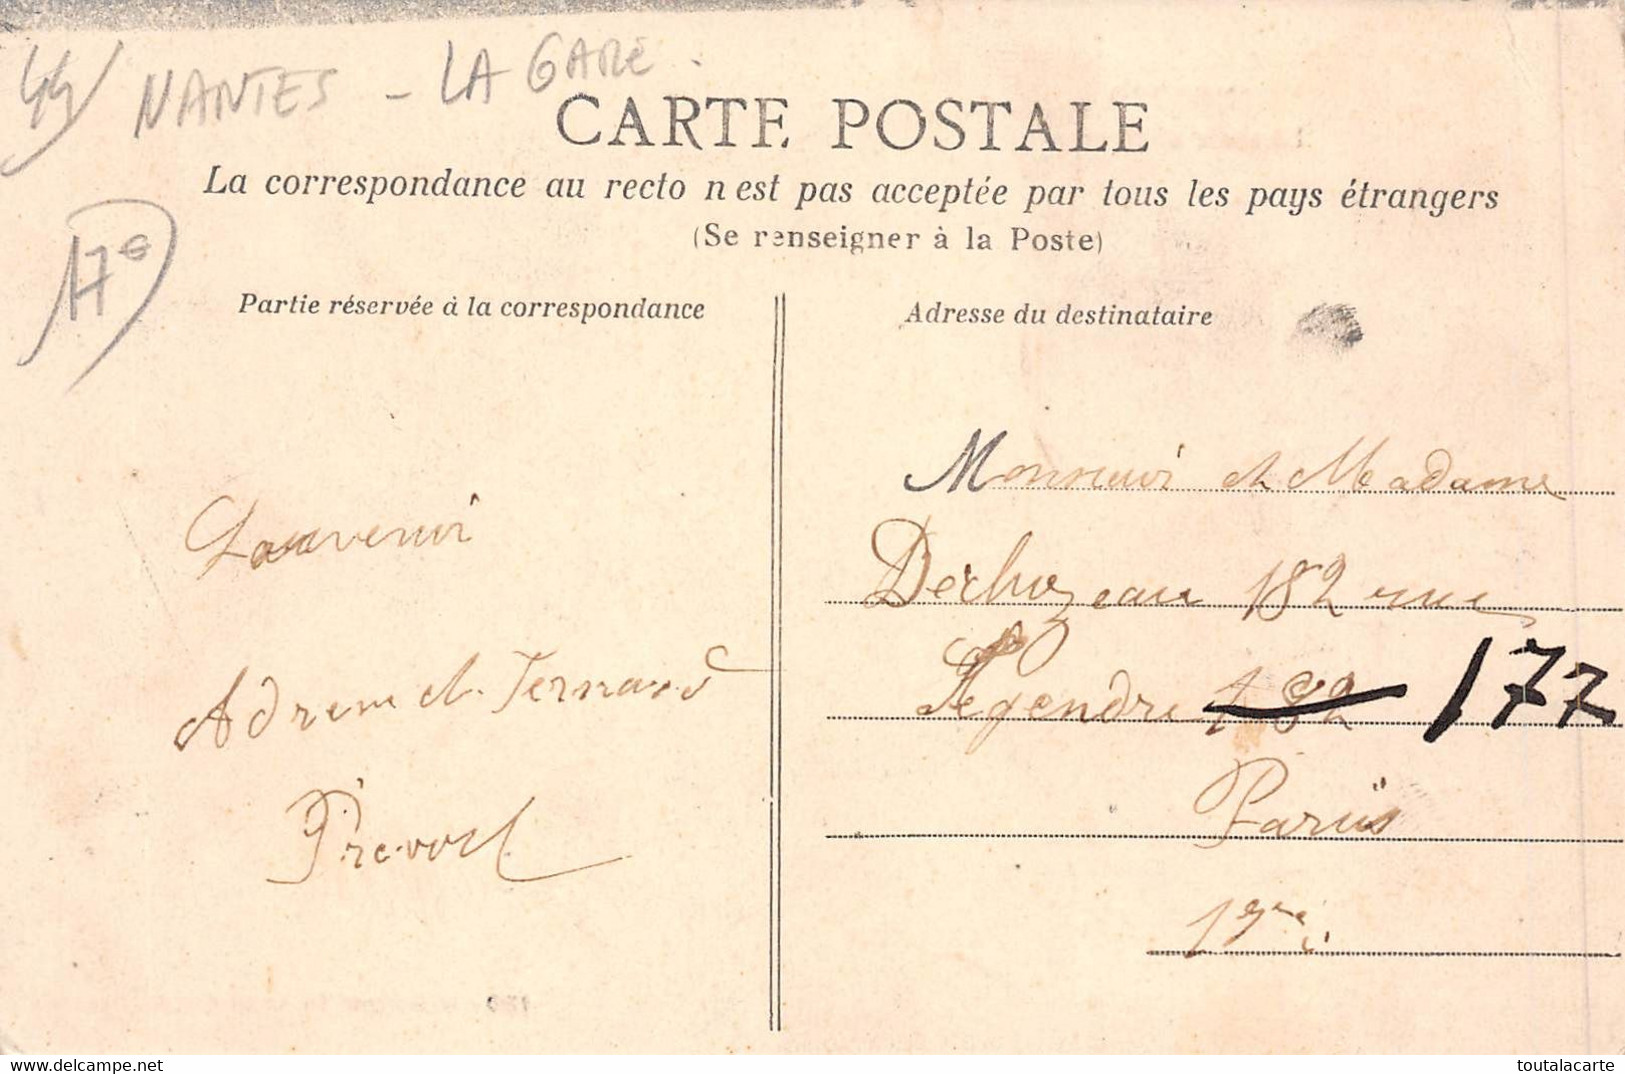 44 NANTES - LA GARE.
17€
CARTE POSTALE
La correspondance au recto n'est pas acceptée par tous les pays étrangers
(Se renseigner à la Poste)
Partie réservée à la correspondance
Adresse du destinataire
Souvenir
et Fernand
Prévost
Monsieur et Madame
182 rue
Legendre 182 177
Paris
17eme
Delcampe.net
toutalacarte